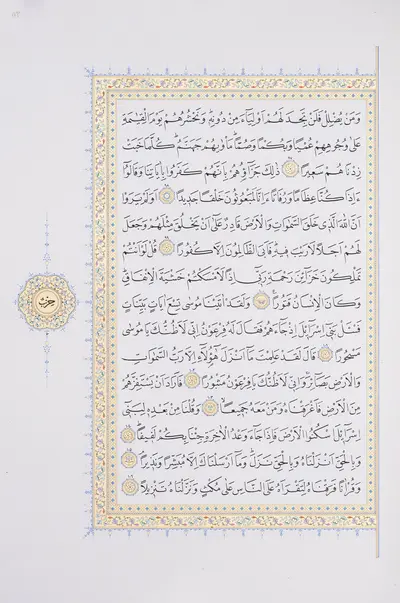 وَمَنْ يُضْلِلْ فَلَنْ تَجِدَ لَهُمْ اَوْلِيَٓاءَ مِنْ دُونِهِۜ وَنَحْشُرُهُمْ يَوْمَ الْقِيٰمَةِ
عَلٰى وُجُوهِهِمْ عُمْيًا وَبُكْمًا وَصُمًّاۜ مَأْوٰيهُمْ جَهَنَّمُۜ كُلَّمَا خَبَتْ
زِدْنَاهُمْ سَعِيرًا ذٰلِكَ جَزَٓاؤُهُمْ بِاَنَّهُمْ كَفَرُوا بِاٰيَاتِنَا وَقَالُٓوا
ءَاِذَا كُنَّا عِظَامًا وَرُفَاتًا ءَاِنَّا لَمَبْعُوثُونَ خَلْقًا جَدِيدًا اَوَلَمْ يَرَوْا
اَنَّ اللّٰهَ الَّذِي خَلَقَ السَّمٰوَاتِ وَالْاَرْضَ قَادِرٌ عَلٰٓى اَنْ يَخْلُقَ مِثْلَهُمْ وَجَعَلَ
لَهُمْ اَجَلًا لَا رَيْبَ فِيهِۜ فَاَبَى الظَّالِمُونَ اِلَّا كُفُورًا قُلْ لَوْ اَنْتُمْ
تَمْلِكُونَ خَزَٓائِنَ رَحْمَةِ رَبِّٓي اِذًا لَاَمْسَكْتُمْ خَشْيَةَ الْاِنْفَاقِۜ
وَكَانَ الْاِنْسَانُ قَتُورًا وَلَقَدْ اٰتَيْنَا مُوسٰى تِسْعَ اٰيَاتٍ بَيِّنَاتٍ
فَسْـَٔلْ بَنِٓي اِسْرَٓائِلَ اِذْ جَٓاءَهُمْ فَقَالَ لَهُ فِرْعَوْنُ اِنِّي لَاَظُنُّكَ يَا مُوسٰى
مَسْحُورًا قَالَ لَقَدْ عَلِمْتَ مَٓا اَنْزَلَ هٰٓؤُلَٓاءِ اِلَّا رَبُّ السَّمٰوَاتِ
وَالْاَرْضِ بَصَٓائِرَۚ وَاِنِّي لَاَظُنُّكَ يَا فِرْعَوْنُ مَثْبُورًا فَاَرَادَ اَنْ يَسْتَفِزَّهُمْ
مِنَ الْاَرْضِ فَاَغْرَقْنَاهُ وَمَنْ مَعَهُ جَمِيعًا وَقُلْنَا مِنْ بَعْدِهِ لِبَنِٓي
اِسْرَٓائِلَ اسْكُنُوا الْاَرْضَ فَاِذَا جَٓاءَ وَعْدُ الْاٰخِرَةِ جِئْنَا بِكُمْ لَفِيفًا
وَبِالْحَقِّ اَنْزَلْنَاهُ وَبِالْحَقِّ نَزَلَۜ وَمَٓا اَرْسَلْنَاكَ اِلَّا مُبَشِّرًا وَنَذِيرًا
وَقُرْاٰنًا فَرَقْنَاهُ لِتَقْرَاَهُ عَلَى النَّاسِ عَلٰى مُكْثٍ وَنَزَّلْنَاهُ تَنْزِيلًا
حزب